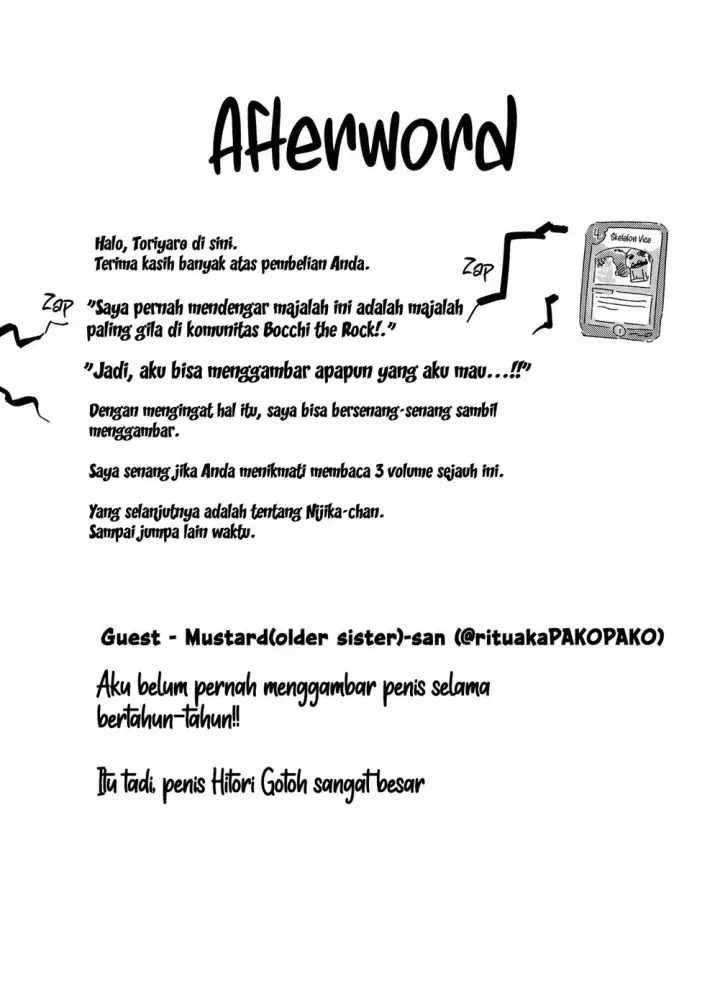 Afterword
Halo, Toriyaro di sini.
Terima kasih banyak atas pembelian Anda.
Zap
4
Skeleton Vice
1
Zap
"Saya pernah mendengar majalah ini adalah majalah
paling gila di komunitas Bocchi the Rock!."
"Jadi, aku bisa menggambar apapun yang aku mau...!!"
Dengan mengingat hal itu, saya bisa bersenang-senang sambil
menggambar.
Saya senang jika Anda menikmati membaca 3 volume sejauh ini.
Yang selanjutnya adalah tentang Nijika-chan.
Sampai jumpa lain waktu.
Guest - Mustard(older sister)-san (@rituakaPAKOPAKO)
Aku belum pernah menggambar penis selama
bertahun-tahun!!